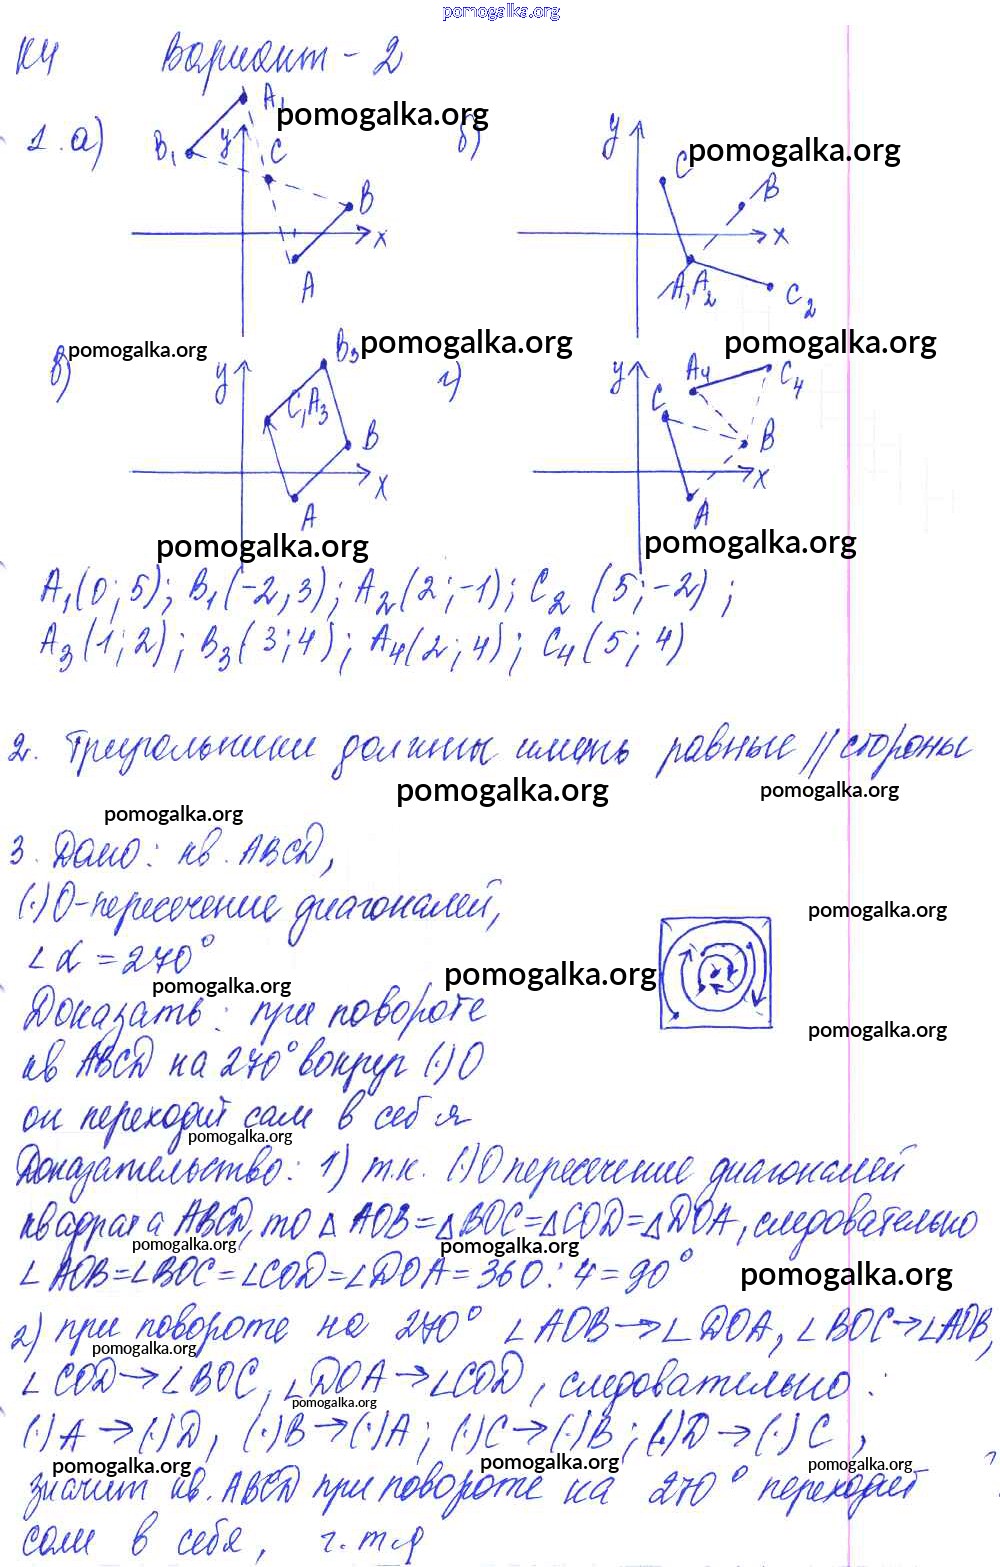 pomogalka.org
К4 Вариант - 2
1. а) A₁ B₁ y C B A x pomogalka.org
б) y C B x A, A₂ C₂ pomogalka.org
в) pomogalka.org y B₃ C, A₃ B x A pomogalka.org
г) y A₄ C₄ C B x A pomogalka.org
pomogalka.org pomogalka.org
A₁(0; 5); B₁(-2; 3); A₂(2; -1); C₂ (5; -2);
A₃(1; 2); B₃(3; 4); A₄(2; 4); C₄(5; 4)
2. Треугольники должны иметь равные // стороны
pomogalka.org pomogalka.org
pomogalka.org
3. Дано: кв. ABCD,
(·) O-пересечение диагоналей,
pomogalka.org
∠α = 270°
pomogalka.org pomogalka.org
Доказать: при повороте
pomogalka.org
кв ABCD на 270° вокруг (·) O
он переходит сам в себя
pomogalka.org
Доказательство: 1) т.к. (·) O пересечение диагоналей
квадрата ABCD, то △ AOB = △ BOC = △ COD = △ DOA, следовательно
pomogalka.org pomogalka.org
∠ AOB = ∠ BOC = ∠ COD = ∠ DOA = 360 : 4 = 90°
pomogalka.org
2) при повороте на 270° ∠ AOB → ∠ DOA, ∠ BOC → ∠ AOB,
pomogalka.org
∠ COD → ∠ BOC, ∠ DOA → ∠ COD, следовательно:
pomogalka.org
(·) A → (·) D, (·) B → (·) A; (·) C → (·) B; (·) D → (·) C,
pomogalka.org pomogalka.org pomogalka.org
значит кв. ABCD при повороте на 270° переходит
сам в себя, ч.т.д